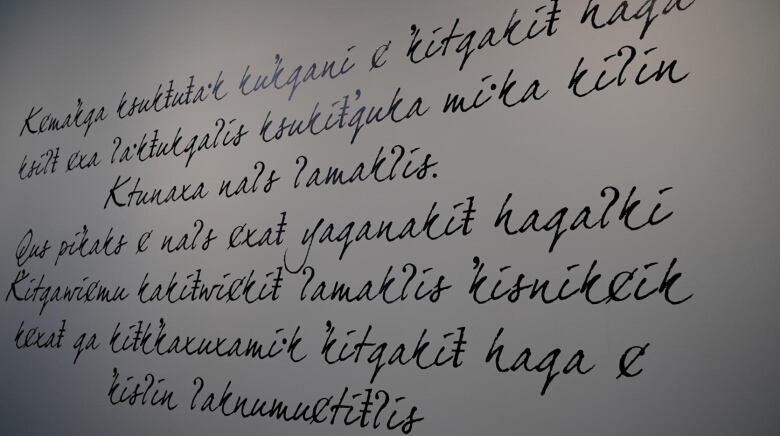 Kema̓kga ksukⱡuⱡa·k ku̓kqani ȼ ̓kitqakiⱡ haqa
ksiʔⱡ ȼxa ʔa·kⱡukqaʔis ksukiⱡ̓quka mi·ka kiʔin
Ktunaxa naʔs ʔamakʔis.
Qus pi̓kaks ȼ naʔs ȼxaⱡ yaqanakiⱡ haqaʔki
̓Kitqawiȼmu kakiⱡwiȼkiⱡ ʔamakʔis ̓kisnikȼik
kȼxaⱡ qa kiⱡk̓kaxuxami·k ̓kitqakiⱡ haqa ȼ
̓kisʔin ʔaknumuȼtiⱡʔis